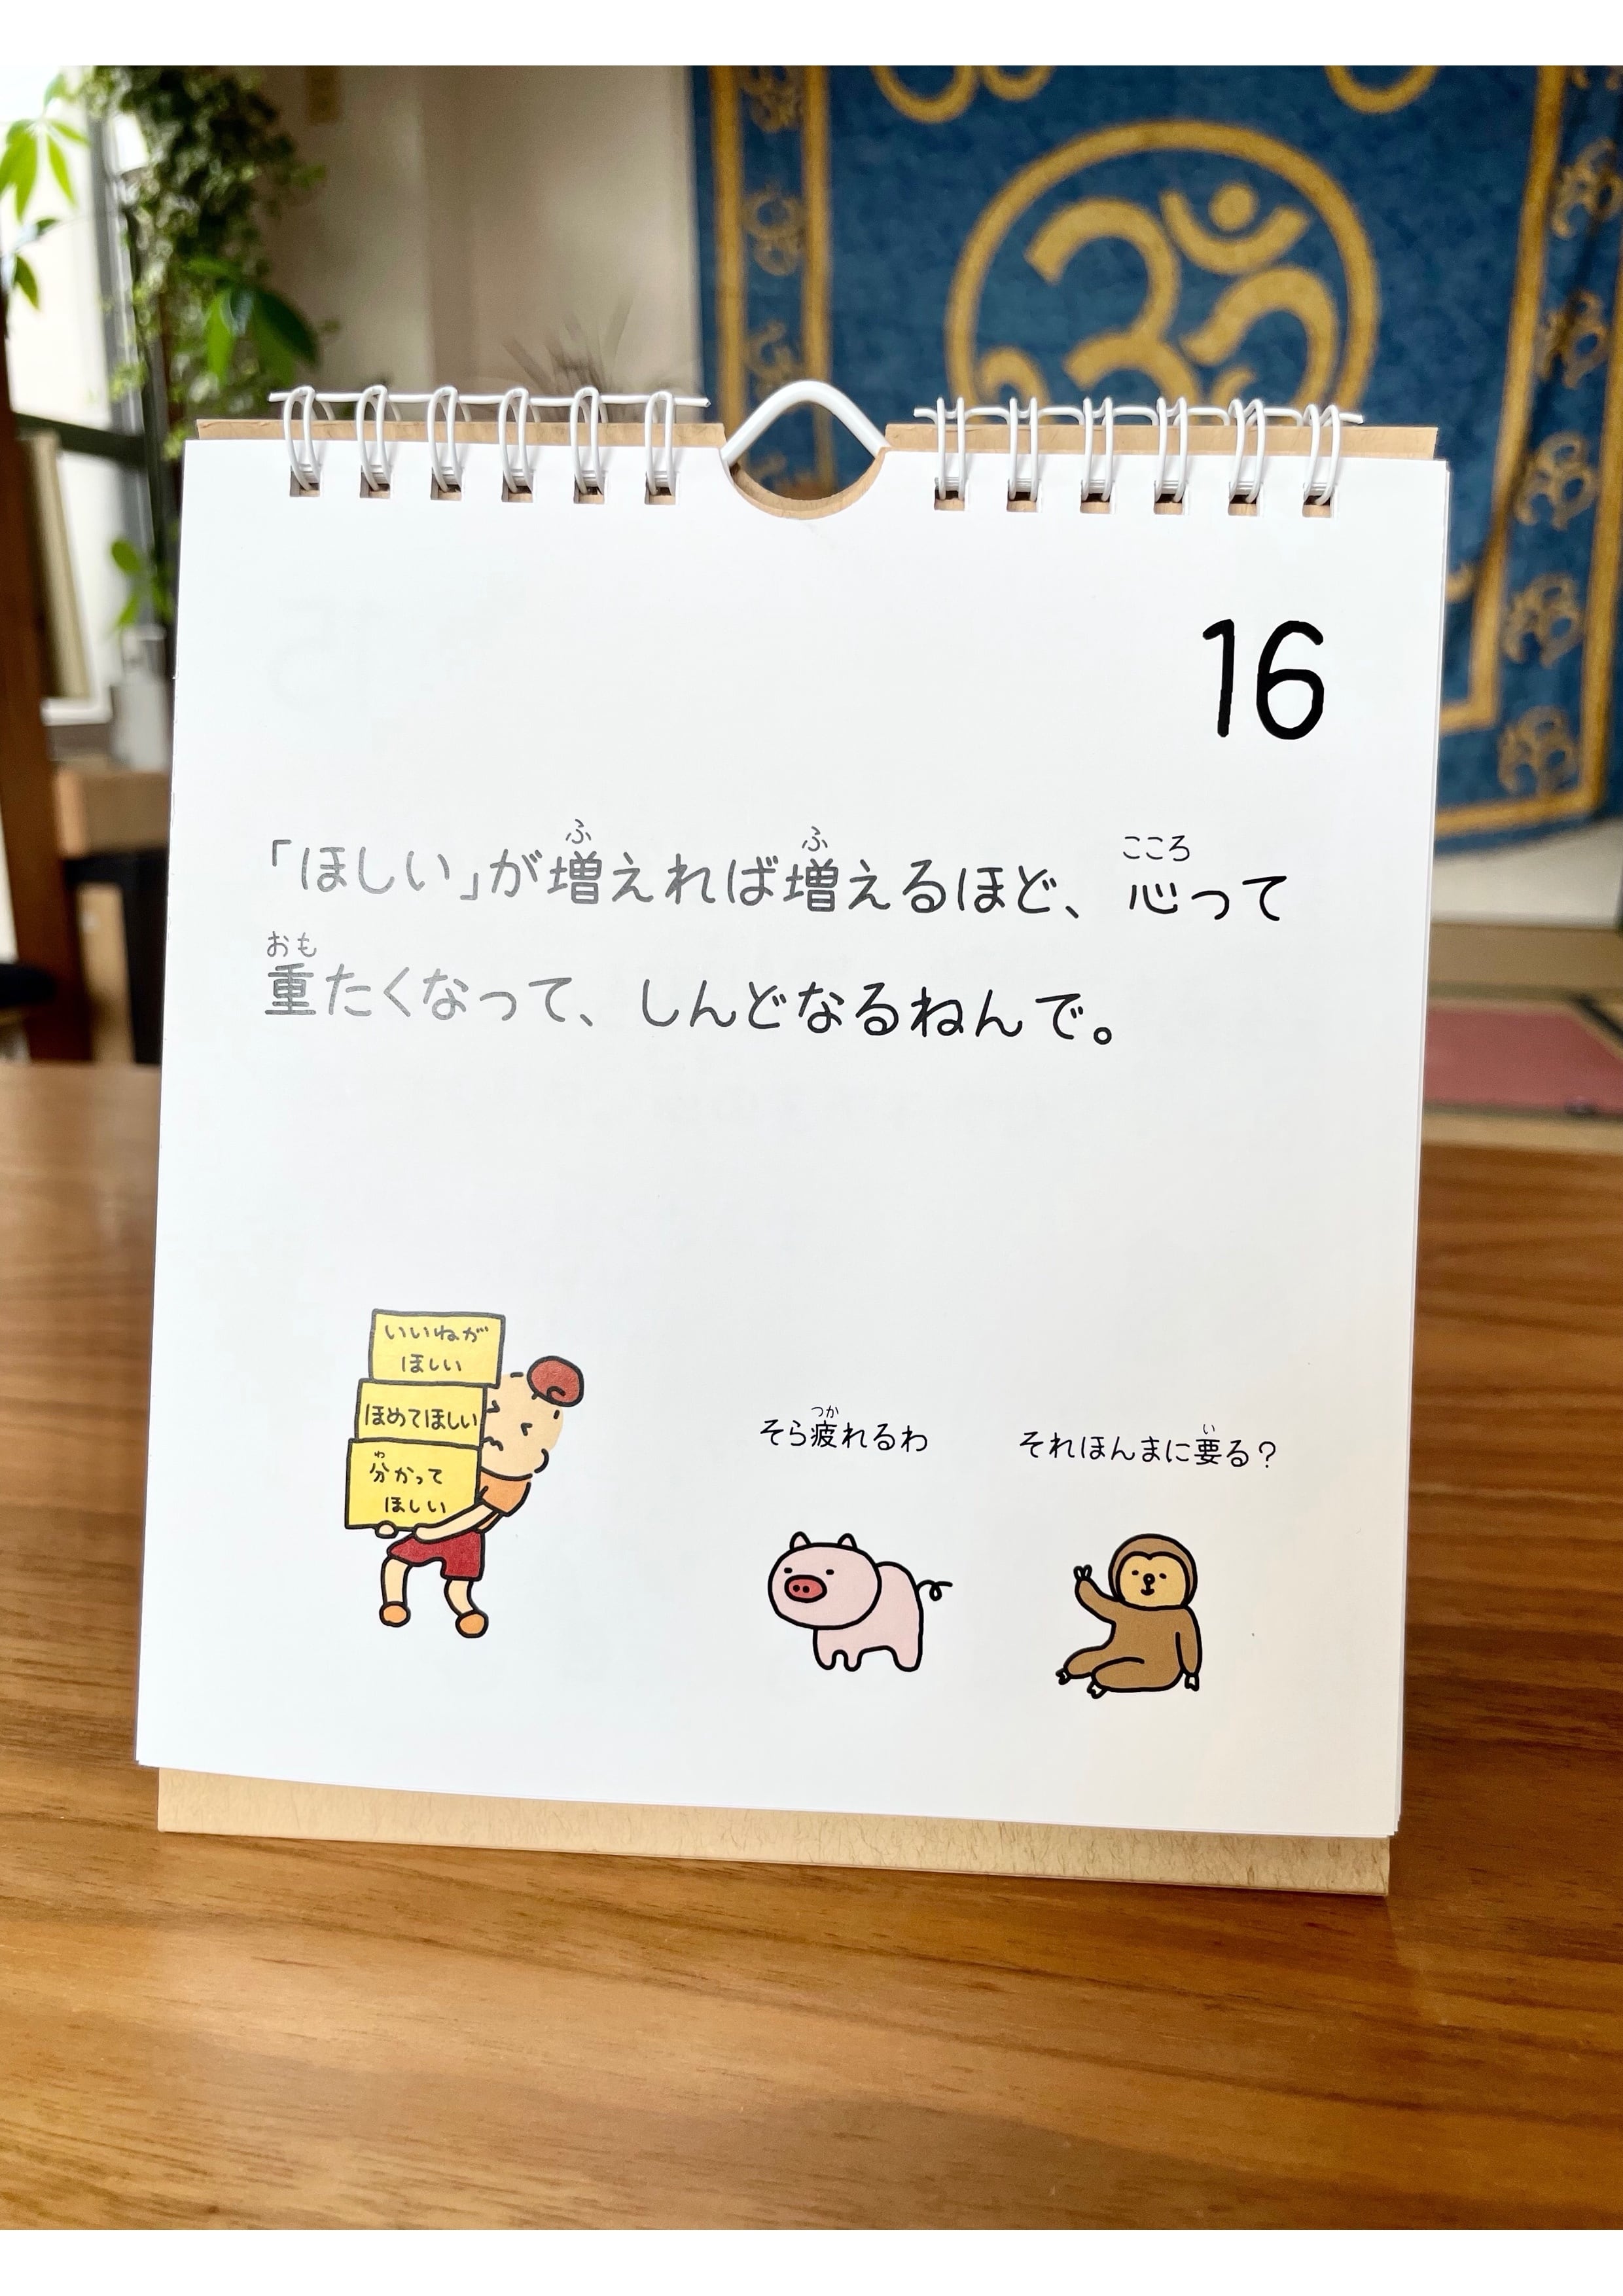 16
「ほしい」が増えれば増えるほど、心って
重たくなって、しんどなるねんで。
いいねが
ほしい
ほめてほしい
分かって
ほしい
そら疲れるわ
それほんまに要る？